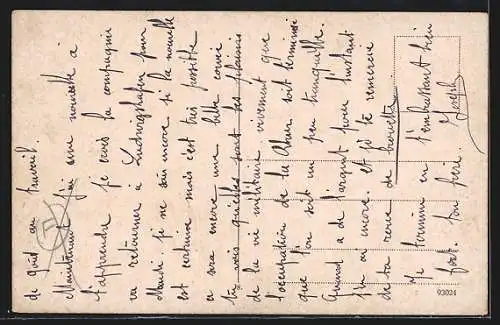 de goût au travail.
Maintenant j'ai une nouvelle à
t'apprendre je crois la compagnie
va retourner à Ludwigshafen pour
Mardi. je ne sais encore si la nouvelle
est certaine mais c'est très possible
ce sera encore une belle corvée
tu vois quelles sont les plaisirs
de la vie militaire. vivement que
l'occupation de la Ruhr soit terminée
que l'on soit un peu tranquille.
Quant à de l'argent pour l'instant
j'en ai encore. et je te remercie
de ta remise de
Je termine en t'embrassant bien
fort. Ton frère.
Joseph
93024